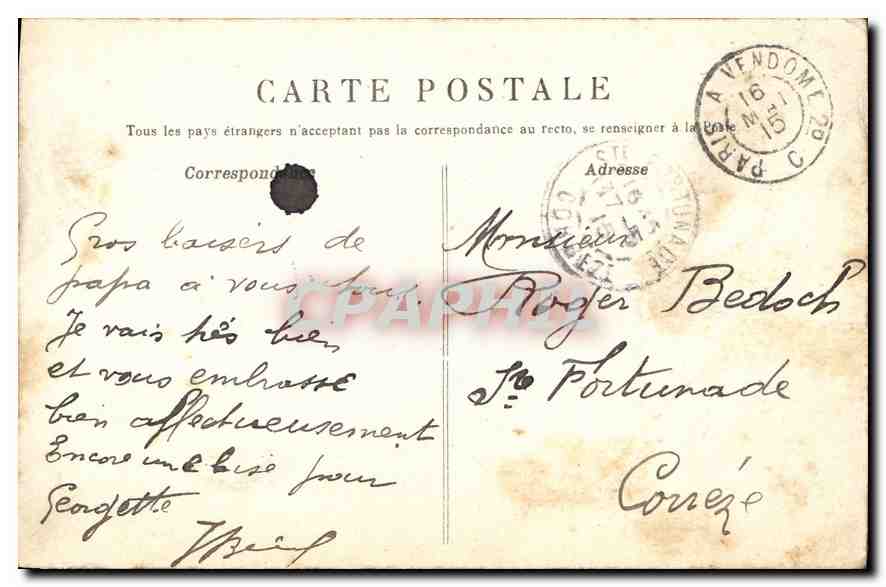 CARTE POSTALE
Tous les pays étrangers n'acceptant pas la correspondance au recto, se renseigner à la Poste
Correspondance
Adresse
PARIS A VENDOME 2º C
16
15
STE FORTUNADE
CORREZE
Gros baisers de
papa à vous tous.
Je vais très bien
et vous embrasse
bien affectueusement
Encore une bise pour
Georgette
Monsieur
Roger Bedoch
Ste Fortunade
Corrèze
CPAPHIL